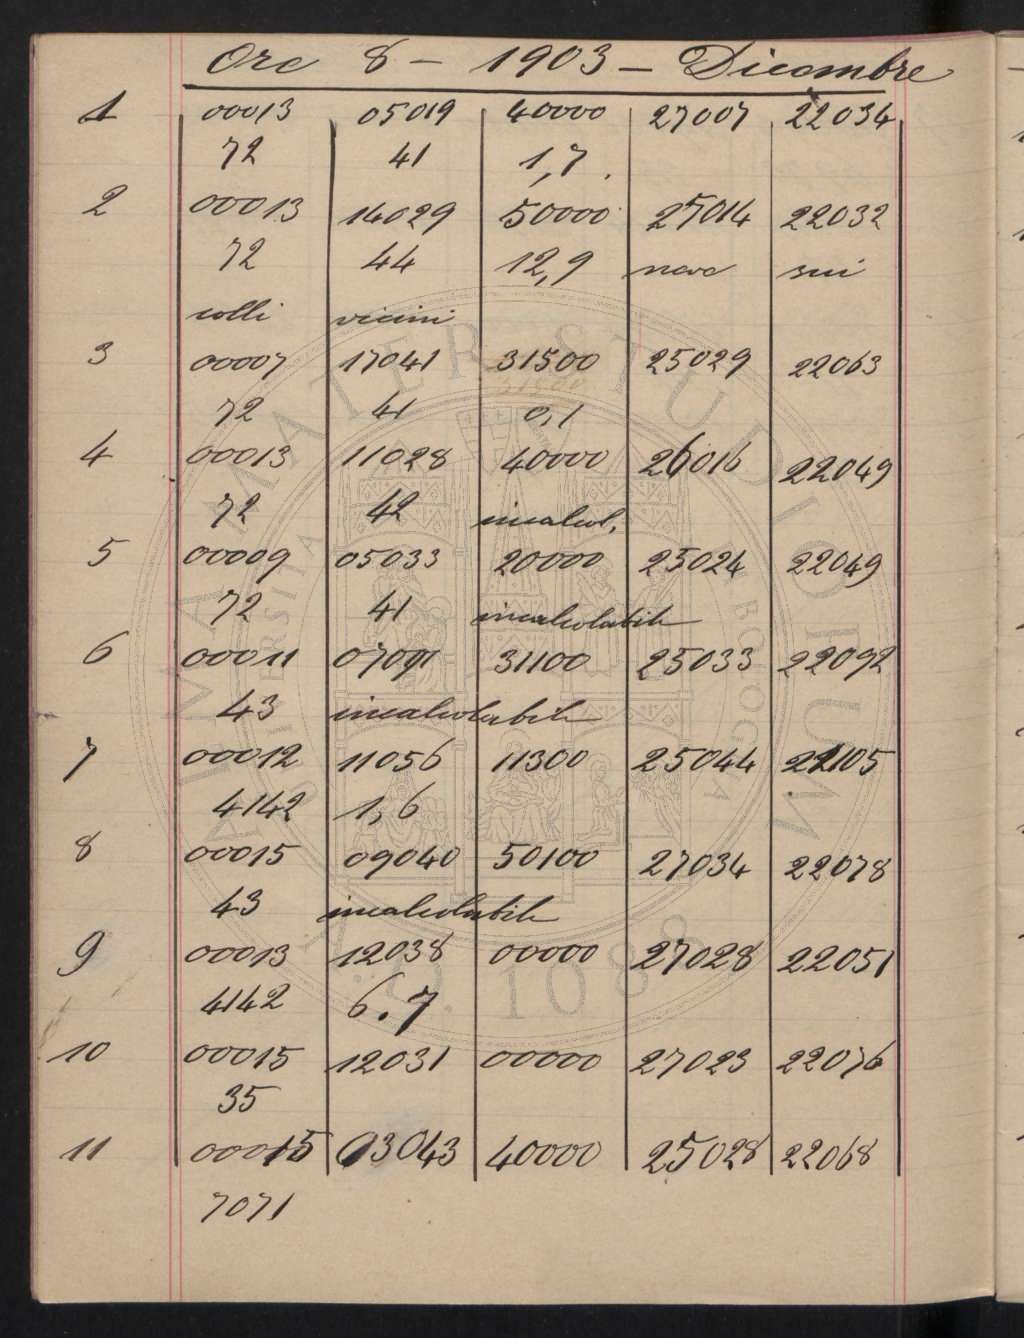 Ore 8 - 1903 - Dicembre
1 00013 05019 40000 27007 22034
72 41 1,7
2 00013 14029 50000 27014 22032
72 44 12,9 neve sui
colli vicini
3 00007 17041 31500 25029 22063
72 41 0,1
4 00013 11028 40000 26016 22049
72 42 incalcol.
5 00009 05033 20000 25024 22049
72 41 incalcolabile
6 00011 07091 31100 25033 22092
43 incalcolabile
7 00012 11056 11300 25044 22105
4142 1,6
8 00015 09040 50100 27034 22078
43 incalcolabile
9 00013 12038 00000 27028 22051
4142 6.7
10 00015 12031 00000 27023 22076
35
11 00015 03043 40000 25028 22068
7071
ALMA MATER STUDIORUM
A.D. 1088